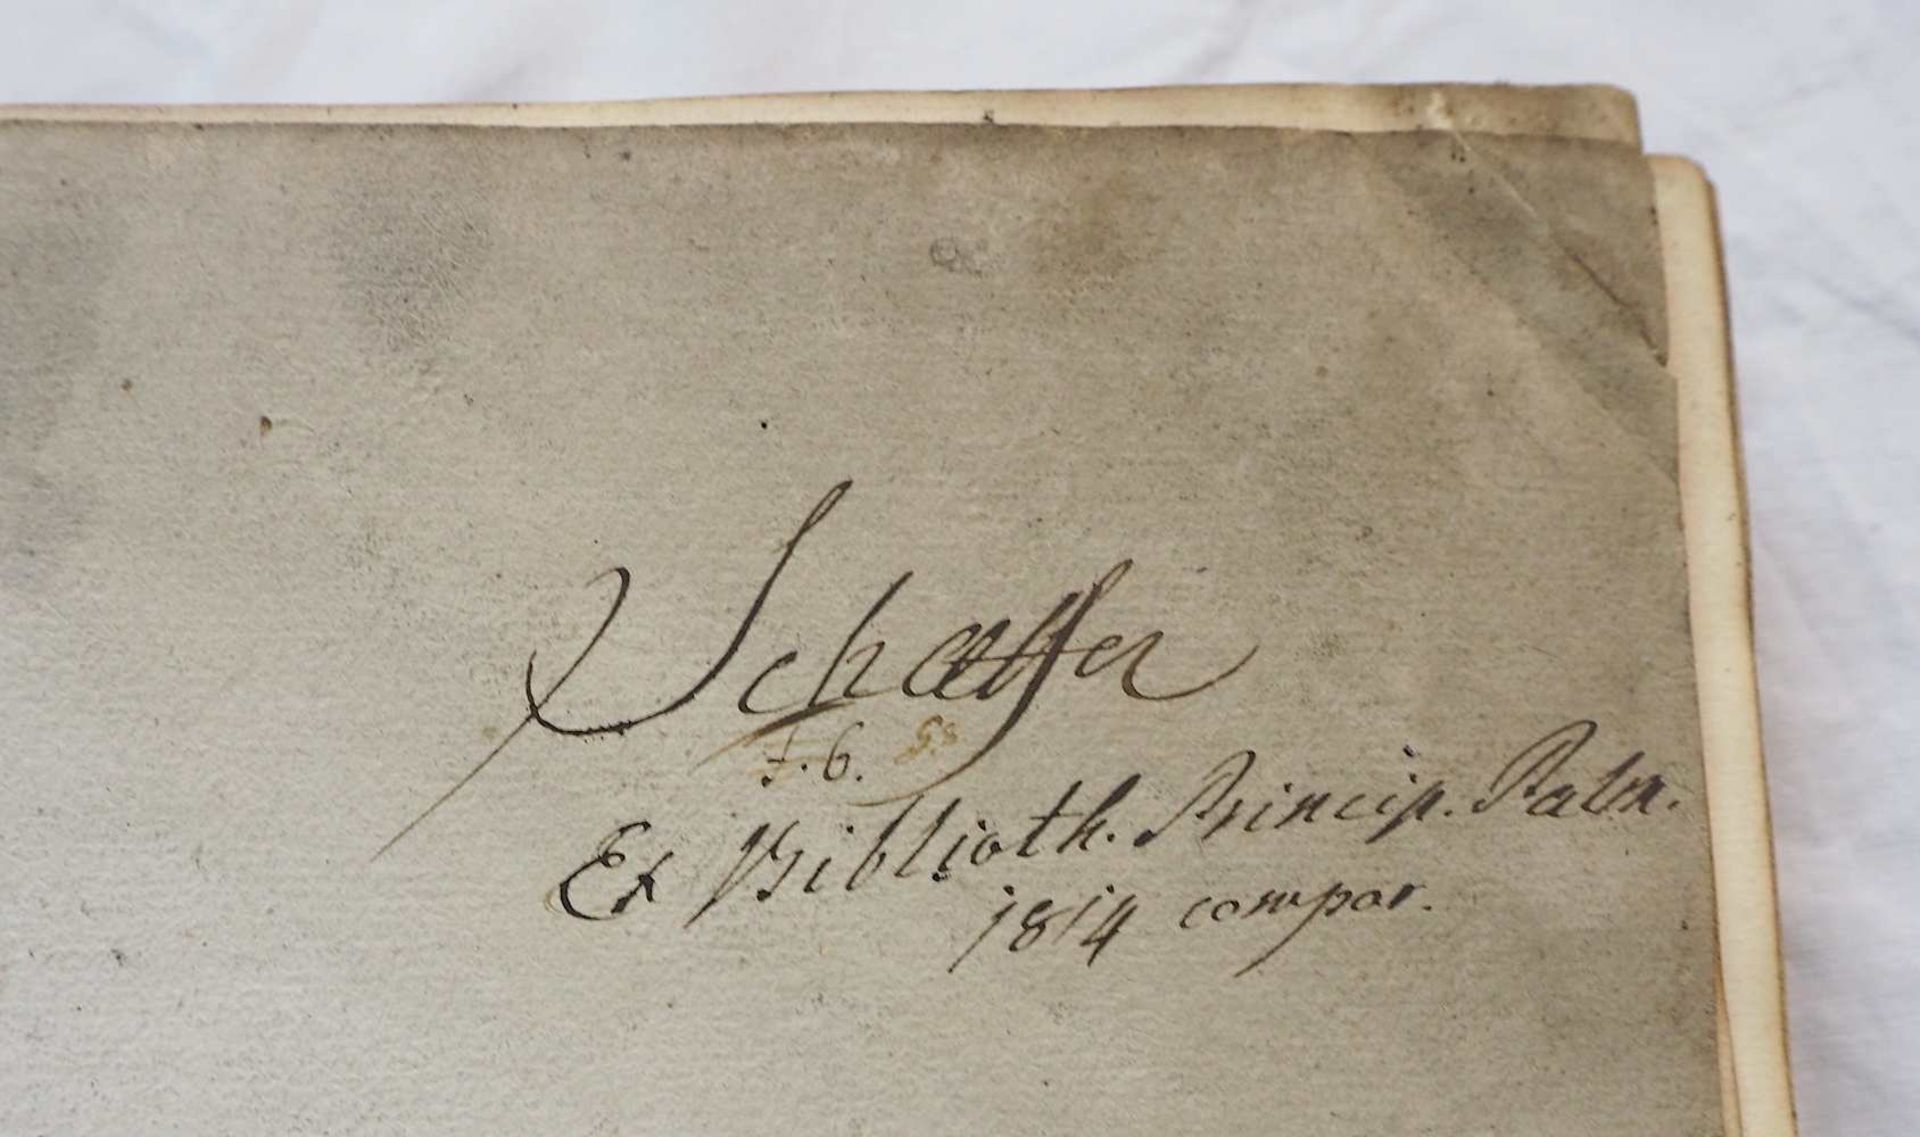 Schæffer
F. G.
Ex Biblioth. Princip. Palm.
1814 compar.